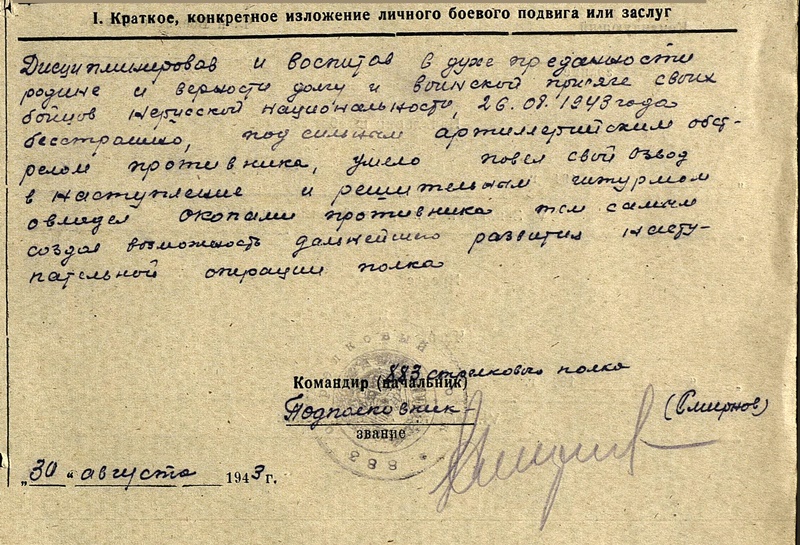 I. Краткое, конкретное изложение личного боевого подвига или заслуг
Дисциплинировав и воспитав в духе преданности
родине и верности долгу и воинской присяге своих
бойцов нерусской национальности, 26.08.1943 года
бесстрашно, под сильным артиллерийским обст-
релом противника, умело повел свой взвод
в наступление и решительным штурмом
овладел окопами противника тем самым
создав возможность дальнейшего развития насту-
пательной операции полка
883 стрелкового полка
Командир (начальник)
Подполковник - (Смирнов)
звание
„30" августа 1943 г.